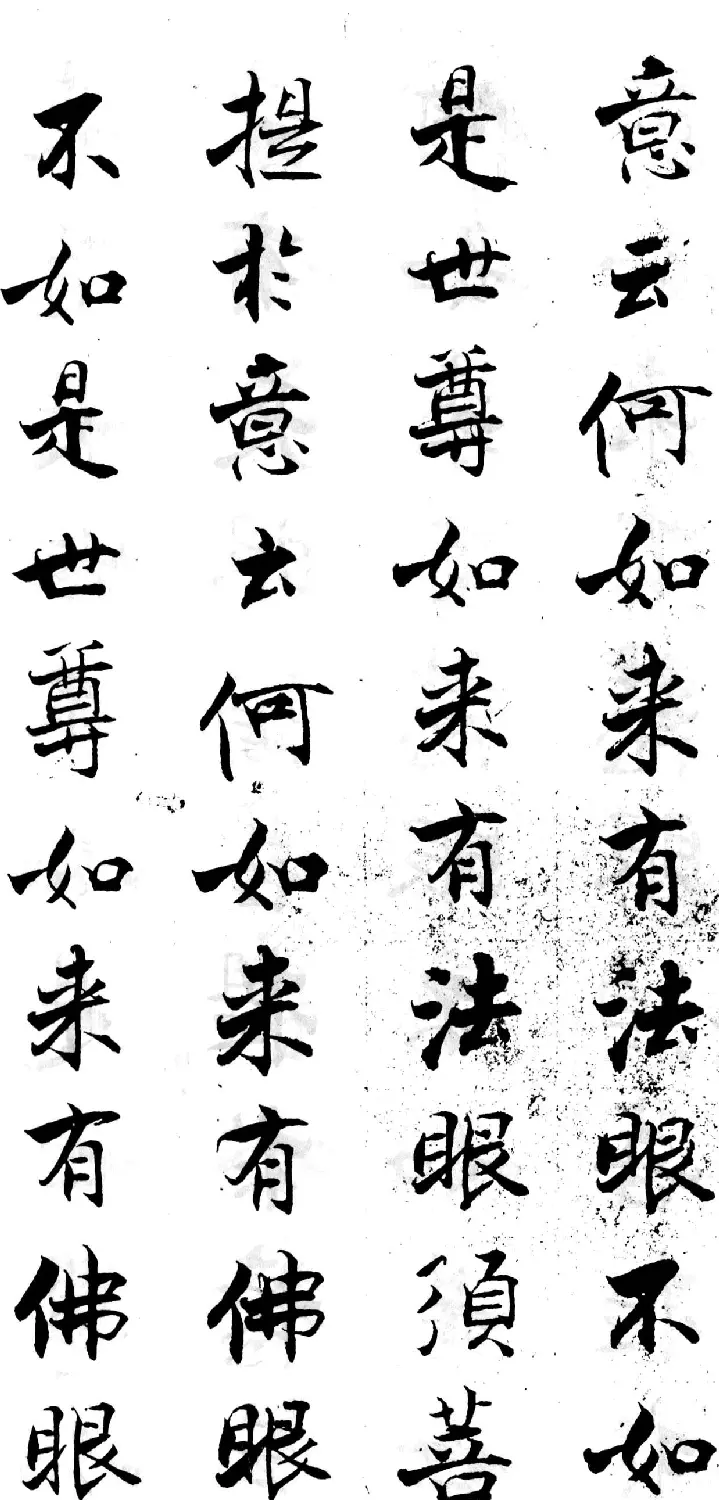 意云何如来有法眼不如
是世尊如来有法眼須菩
提於意云何如来有佛眼
不如是世尊如来有佛眼